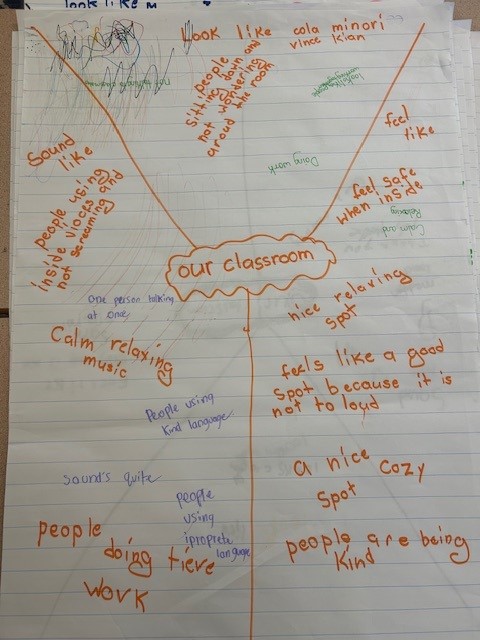 look like
Look like cola minori
vince kian
sitting people
down and
not wondering
aroud the room
Doing work
Sound
like
people using
inside vioces and
not screaming
feel
like
feel safe
when inside
Calm and
Relaxing
our classroom
One person talking
at once
Calm relaxing
music
People using
kind language
Sound's quite
people
using
language
people
doing tieve
work
nice relaxing
spot
feels like a good
spot because it is
not to loud
a nice cozy
spot
people are being
kind